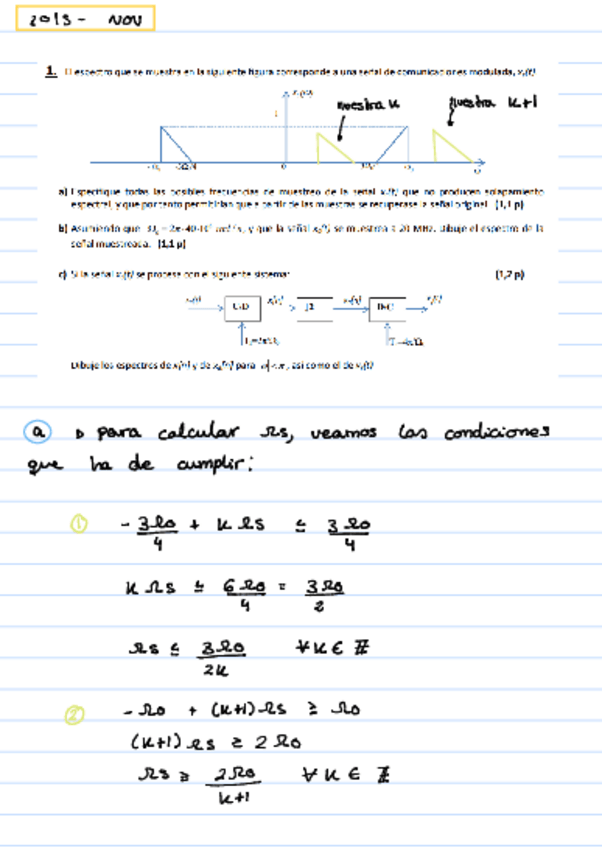 2013 - NOV
1. El espectro que se muestra en la siguiente figura corresponde a una señal de comunicaciones modulada, xc(t)
muestra k
muestra k+1
0
a) Especifique todas las posibles frecuencias de muestreo de la señal xc(t) que no producen solapamiento
espectral, y que por tanto permitirían que a partir de las muestras se recuperase la señal original. (1,1 p)
b) Asumiendo que y que la señal xc(t) se muestrea a 20 MHz. Dibuje el espectro de la
señal muestreada. (1,1 p)
c) Si la señal xc(t) se procesa con el siguiente sistema: (1,2 p)
Dibuje los espectros de y de para así como el de
a ▷ para calcular Ωs, veamos las condiciones
que ha de cumplir:
① - 3Ω0/4 + k Ωs ≤ 3Ω0/4
k Ωs ≤ 6Ω0/4 = 3Ω0/2
Ωs ≤ 3Ω0/2k ∀k ∈ ℤ
② - Ω0 + (k+1)Ωs ≥ Ω0
(k+1) Ωs ≥ 2Ω0
Ωs ≥ 2Ω0/k+1 ∀ k ∈ ℤ